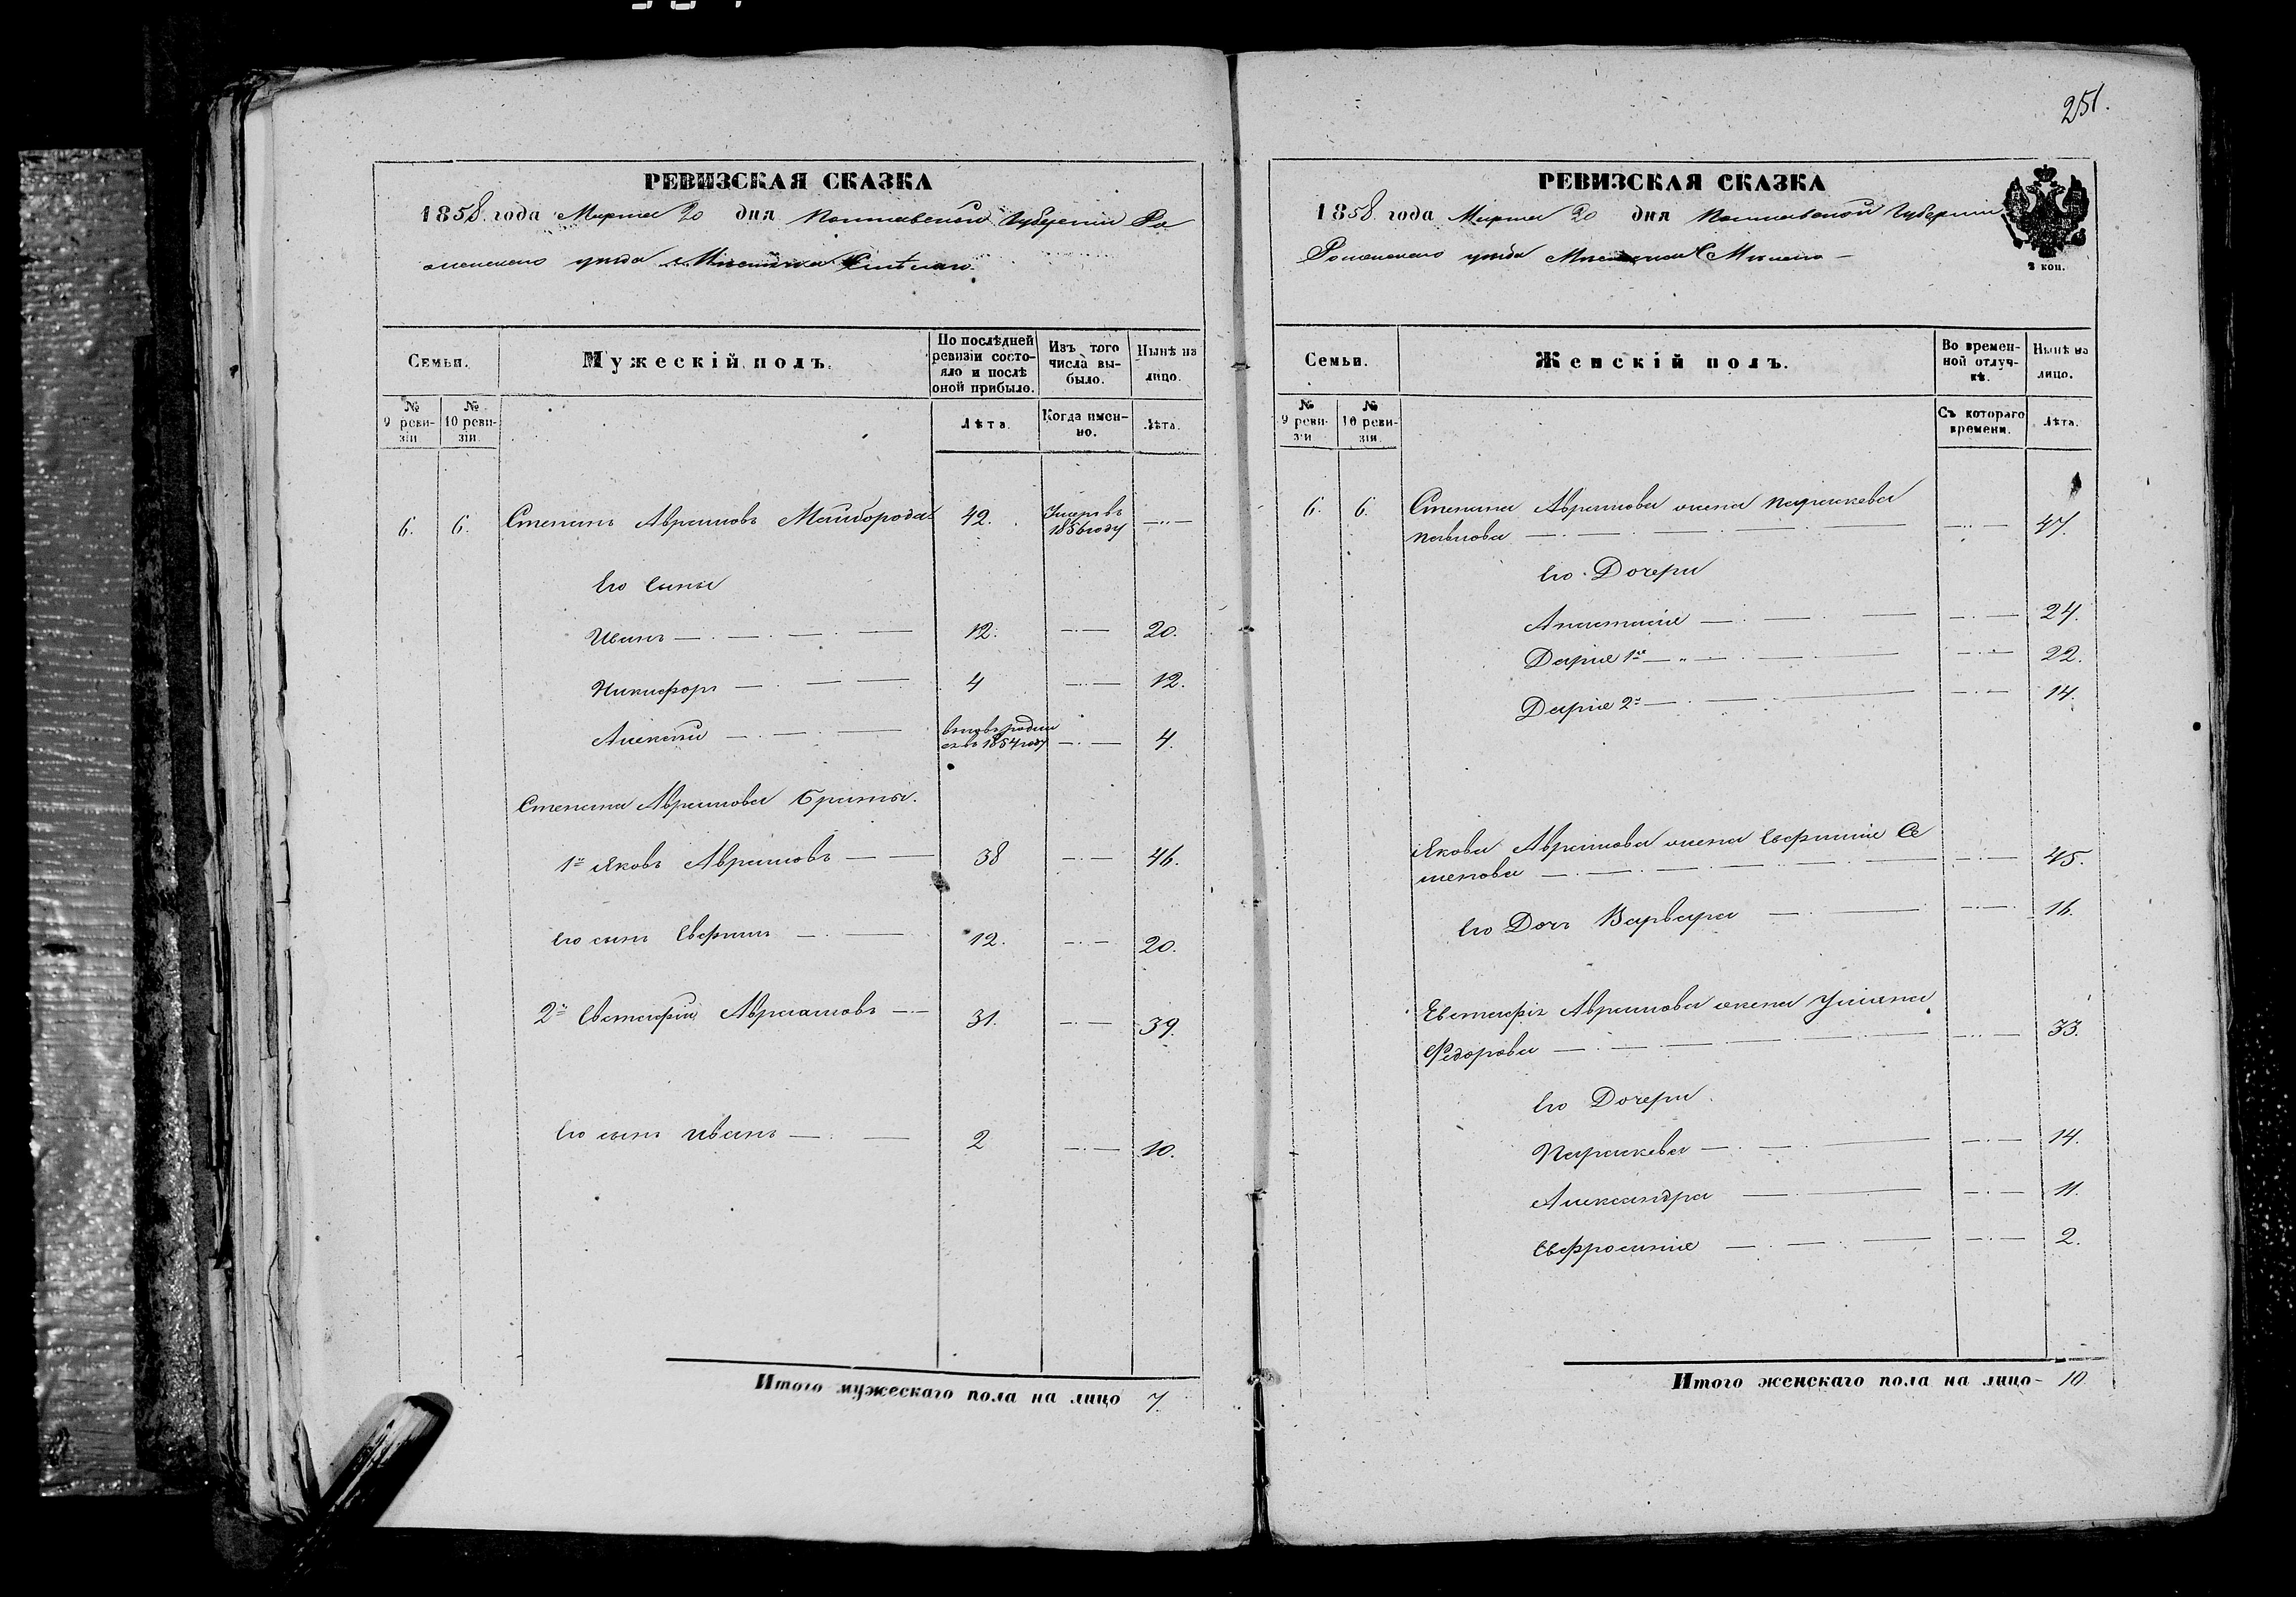 251.
РЕВИЗСКАЯ СКАЗКА
1858. года Марта 20 дня Полтавской Губерніи Ро
менскаго уезда Местечка Смѣлаго.
Семьи.
Мужескій полъ.
По послѣдней ревизіи состояло и послѣ оной прибыло.
Изъ того числа выбыло.
Нынѣ на лицо.
№ 9 ревизіи
№ 10 ревизіи.
Лѣта.
Когда именно.
Лѣта.
6. 6. Степанъ Аврамовъ Майборода 42. Умеръ въ 1856 году —··—
Его Сыны
Иванъ — · — · — · — 12. —·— 20.
Никифоръ — · — — 4 —·— 12.
Алексѣй — · — · — вновь родил
ся въ 1854 году —·— 4.
Степана Аврамова Браты.
1й Яковъ Аврамовъ — — 38 —·— 46.
Его сынъ Евфимъ — · — 12. —·— 20.
2й Евстафій Аврамовъ — 31. —·— 39.
Его сынъ Иванъ — · — 2 —·— 10.
Итого мужескаго пола на лицо 7.
РЕВИЗСКАЯ СКАЗКА
1858. года Марта 20 дня Полтавской Губерніи
Роменскаго уезда Местечка Смелаго —
2 коп.
Семьи.
Женскій полъ.
Во временной отлучкѣ.
Нынѣ на лицо.
№ 9 ревизіи
№ 10 ревизіи.
Съ котораго времени.
Лѣта.
6. 6. Степана Аврамова жена Параскева
Павлова — · — · — — — —··— 47.
Его Дочери
Анастасія — · — · — —·— 24.
Дарія 1я — · — · — —·— 22.
Дарія 2я — · — —·— 14.
Якова Аврамова жена Евфимія Се
менова — · — · — · — —·— 45.
Его Дочь Варвара — · — —·— 16.
Евстафія Аврамова жена Уліяна
Федорова — · — · — · — —·— 33.
Его Дочери.
Параскева — · — · — —·— 14.
Александра — · — —·— 11.
Евфросинія — · — · — —·— 2.
Итого женскаго пола на лицо - 10.